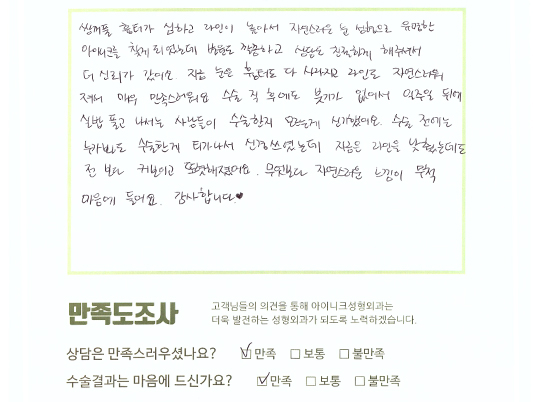 쌍꺼풀 흉터가 심하고 라인이 높아서 자연스러운 눈 성형으로 유명한
아이니크를 찾게 되었는데 병원도 깔끔하고 상담도 친절하게 해주셔서
더 신뢰가 갔어요 지금 눈은 흉터도 다 사라지고 라인도 자연스러워
져서 매우 만족스러워요 수술 직후에도 붓기가 없어서 일주일 뒤에
실밥 풀고 나서는 사람들이 수술한지 모르는게 신기했어요. 수술 전에는
누가봐도 수술한게 티가나서 신경쓰였는데 지금은 라인을 낮췄는데도
전 보다 커보이고 또렷해졌어요. 무엇보다 자연스러운 느낌이 무척
마음에 들어요. 감사합니다♥
만족도조사
고객님들의 의견을 통해 아이니크성형외과는
더욱 발전하는 성형외과가 되도록 노력하겠습니다.
상담은 만족스러우셨나요? ☑ 만족 □ 보통 □ 불만족
수술결과는 마음에 드신가요? ☑ 만족 □ 보통 □ 불만족